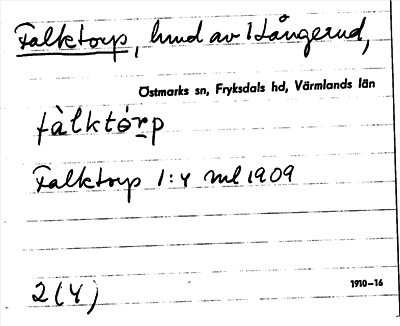 Falktorp, hmd av 1 Långerud,
Östmarks sn, Fryksdals hd, Värmlands län
fàlktór̲p
Falktorp 1:4 ml 1909
2 (4)
1910–16